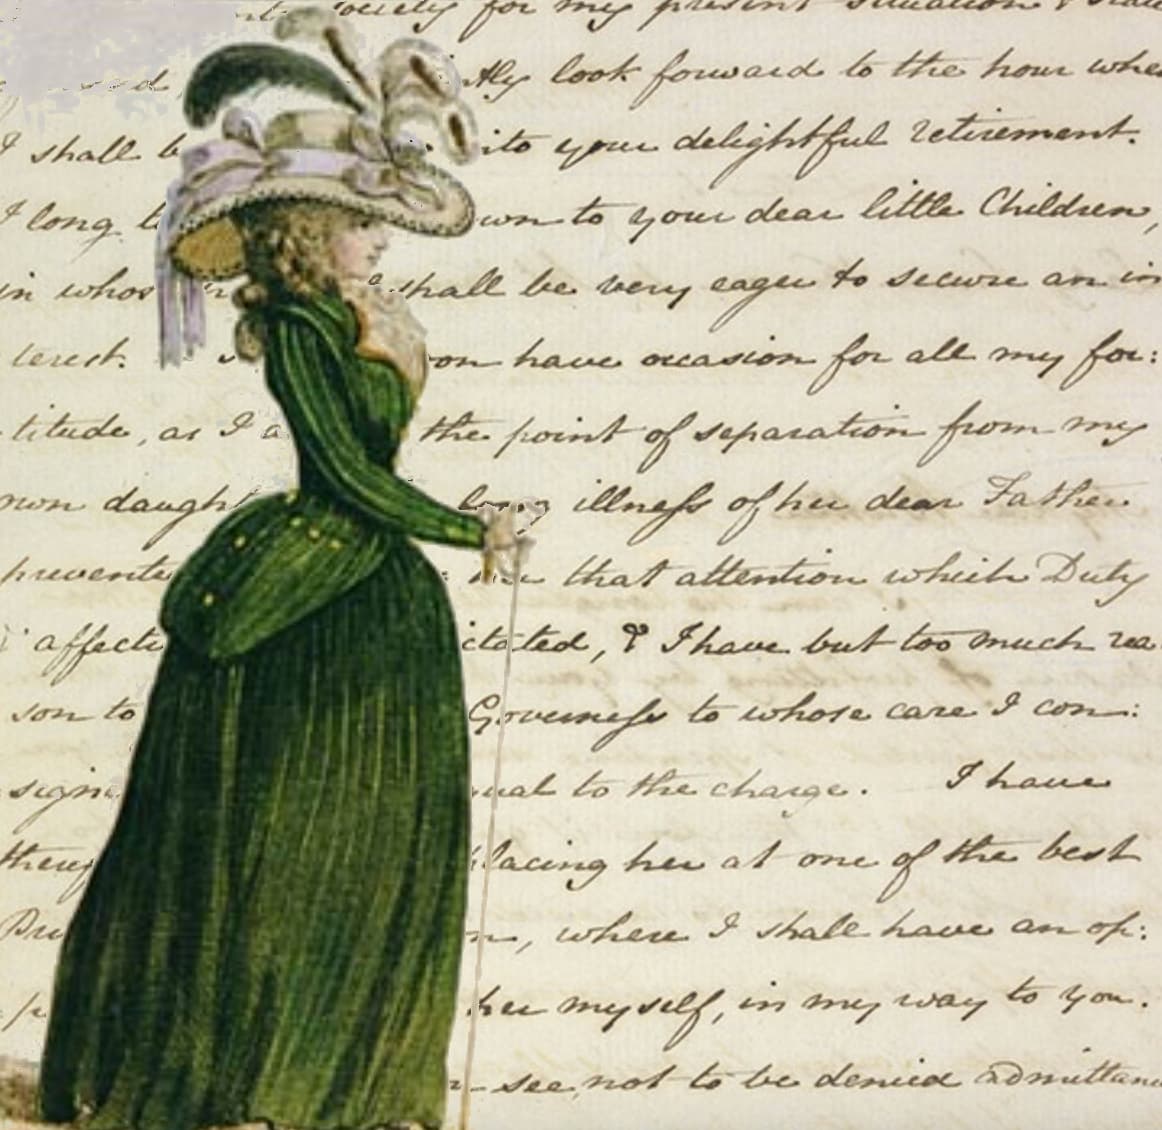 society for my present situation & state
ntly look forward to the hour when
I shall b into your delightful retirement.
I long t own to your dear little Children,
in whos shall be very eager to secure an in
terest. s oon have occasion for all my for:
titude, as I a the point of separation from my
own daught long illness of her dear Father
prevente her that attention which Duty
& affecti ictated, & I have but too much rea
son to Governess to whose care I con:
signe ual to the charge. I have
there lacing her at one of the best
n, where I shall have an op:
her myself, in my way to you.
see, not to be denied admittanc